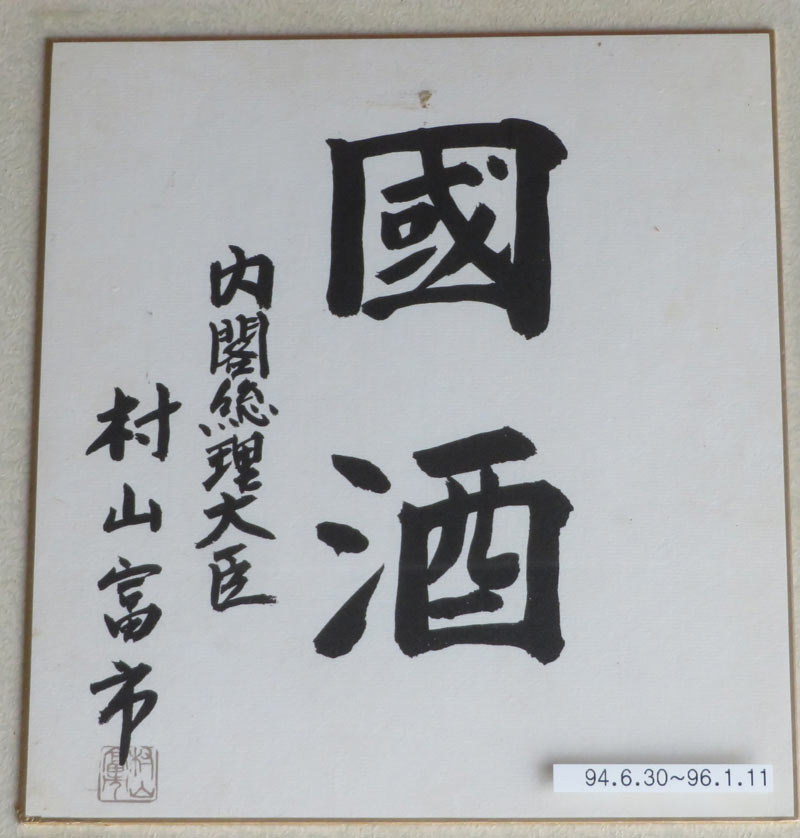 國酒
内閣総理大臣
村山富市
村山
富市
94.6.30~96.1.11